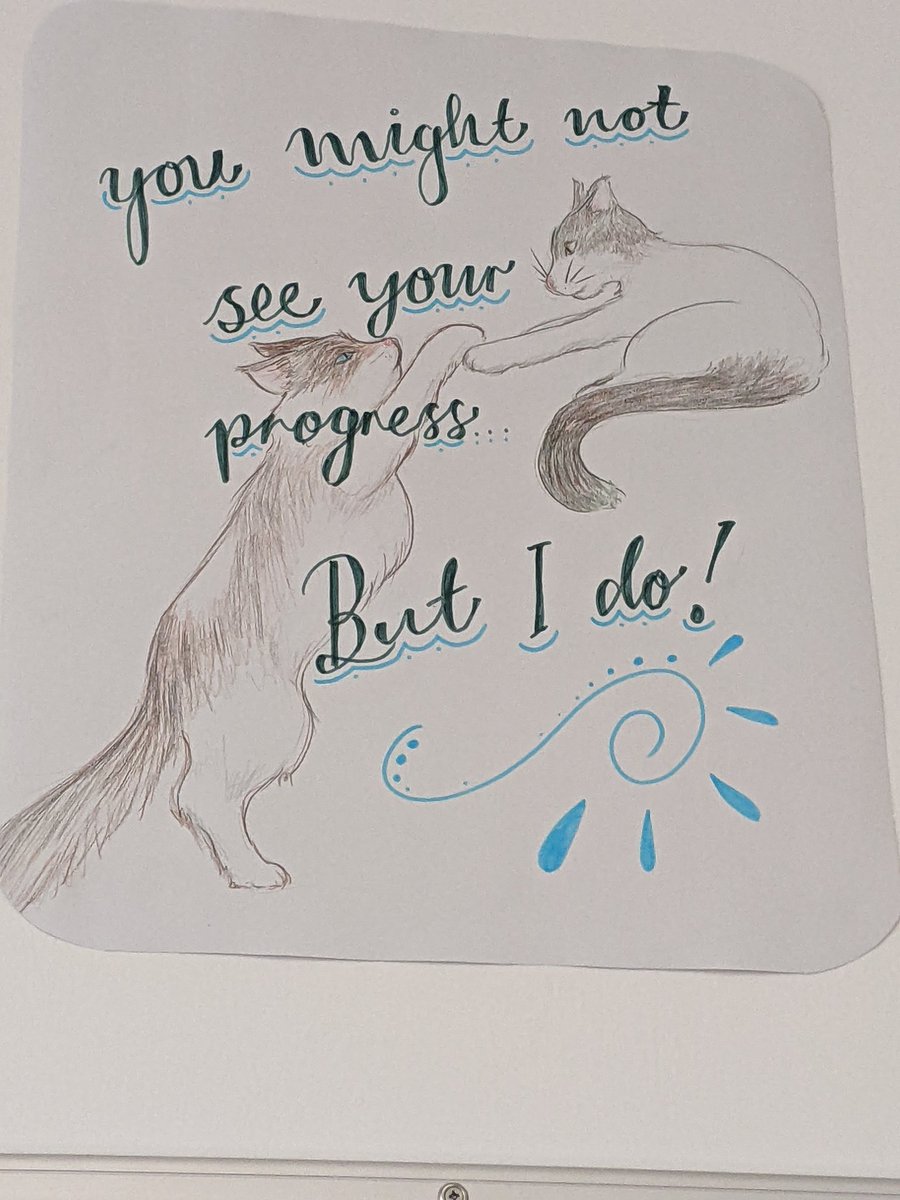 you might not
see your
progress...
But I do!